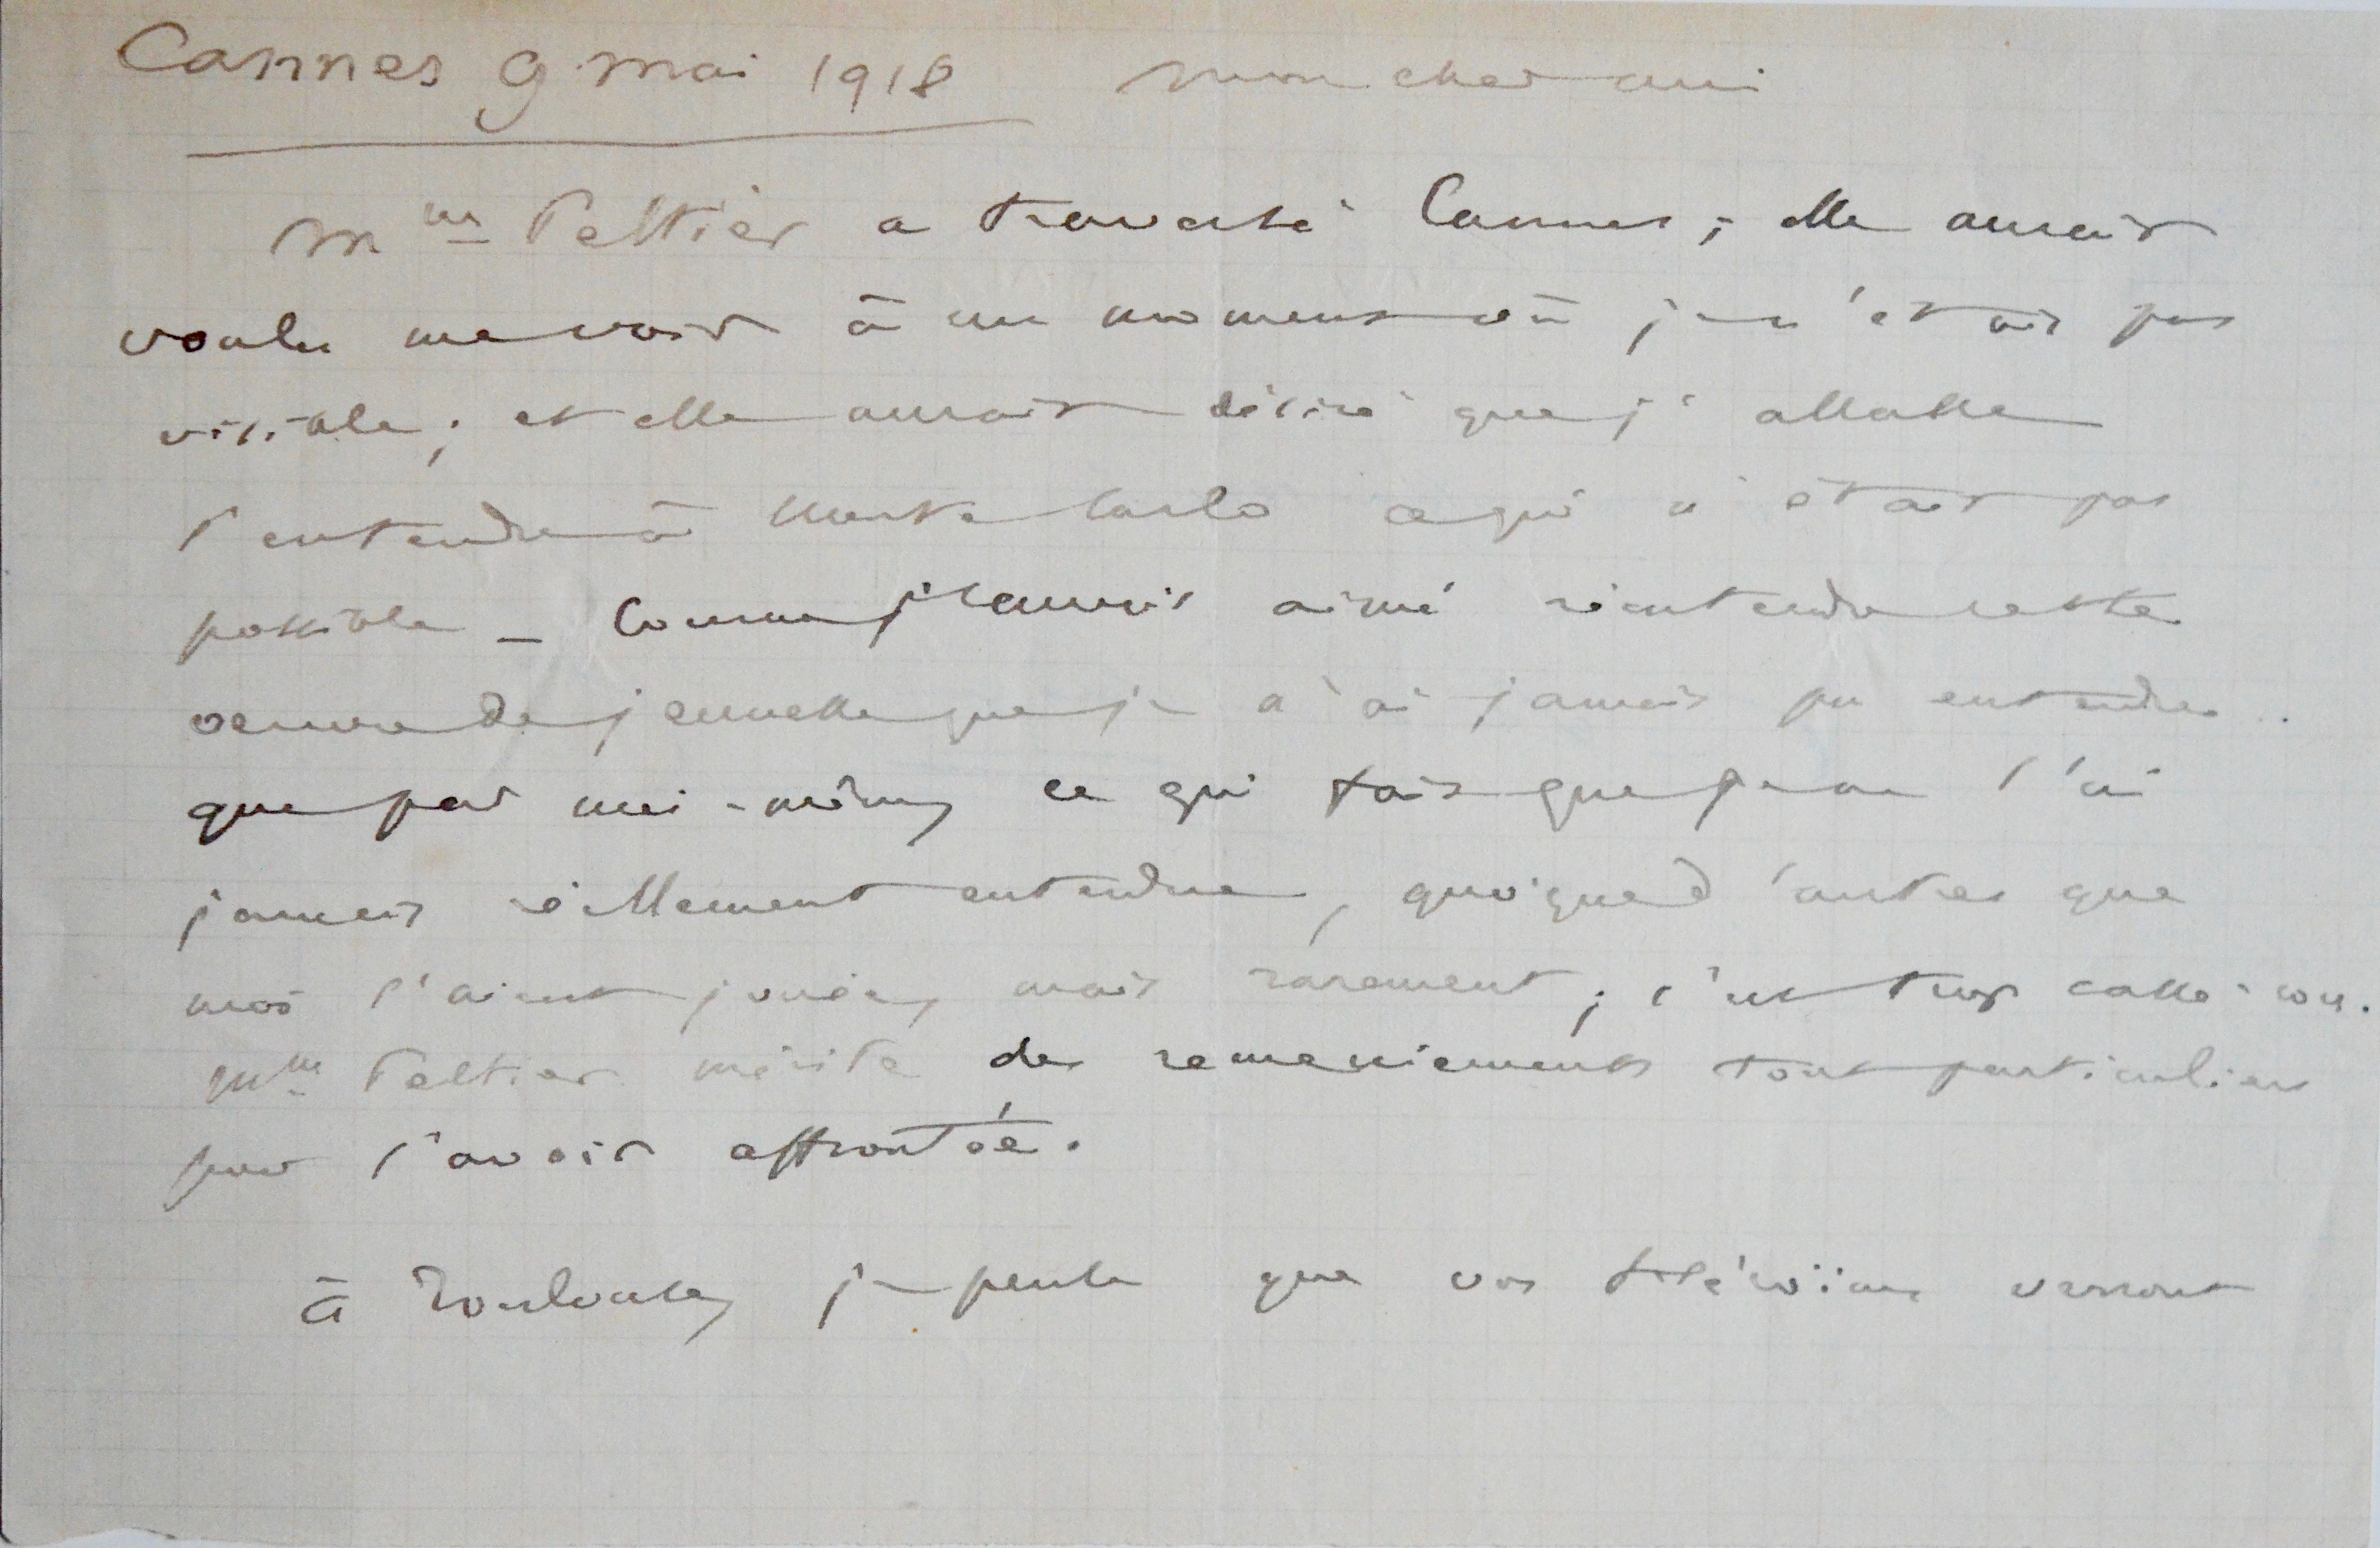 Cannes 9 mai 1918 mon cher ami
Mme Peltier a traversé Cannes; elle aurait
voulu me voir à un moment où je n'étais pas
visible; et elle aurait désiré que j'allasse
l'entendre à Monte Carlo ce qui n'était pas
possible _ Comme j'aurais aimé entendre cette
oeuvre de jeunesse que je n'ai jamais pu entendre..
que par moi-même, ce qui fait que je ne l'ai
jamais réellement entendue, quoique d'autres que
moi l'aient jouée, mais rarement; c'est trop casse-cou.
Mme Peltier mérite des remerciements tout particuliers
pour l'avoir affrontée.
à Toulouse, je pense que vos verront